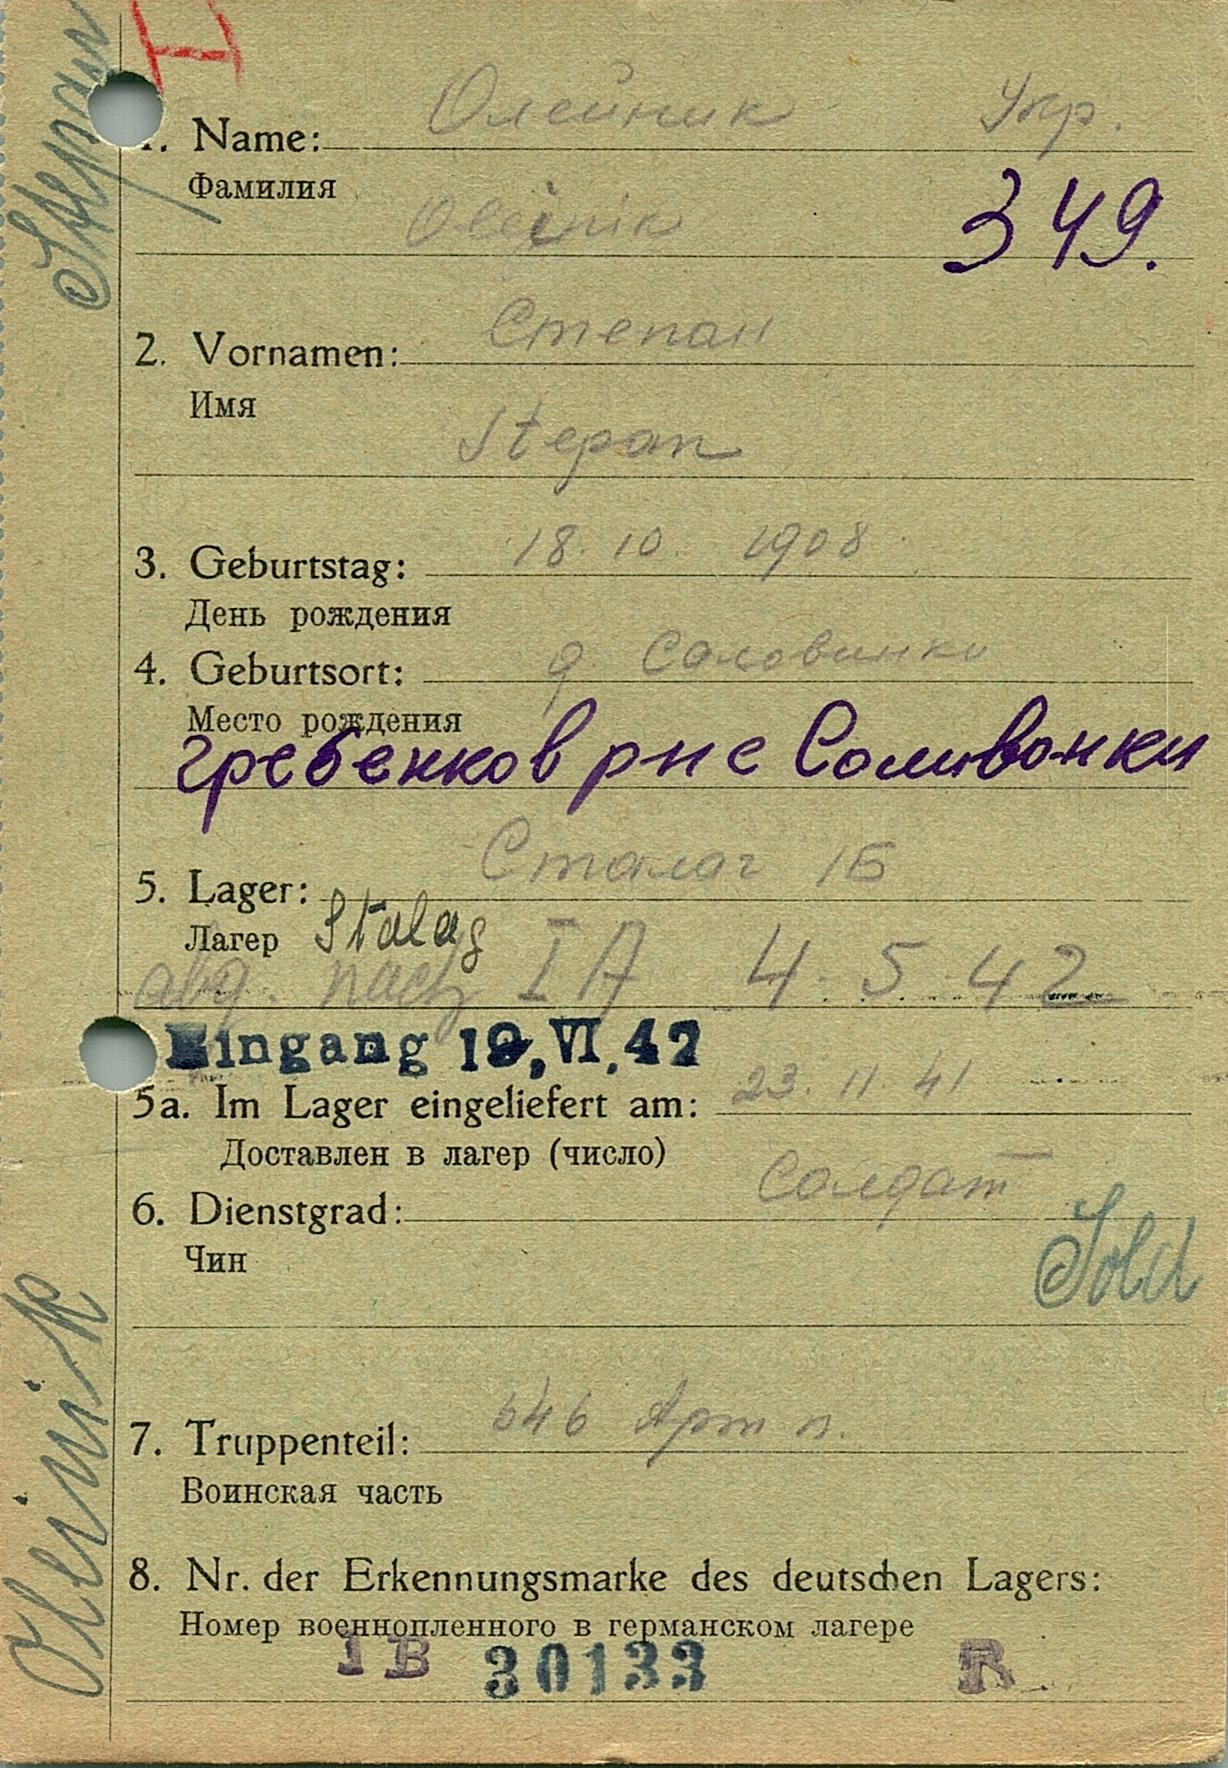 Stepan
Олейник Укр.
1. Name:
Фамилия
349.
Olejnik
Степан
2. Vornamen:
Имя
Stepan
18. 10. 1908
3. Geburtstag:
День рождения
д Соловинки
4. Geburtsort:
Место рождения
гребенков рн с Соливонки
Сталаг 1Б
5. Lager:
Лагер Stalag
abg. nach IA 4. 5. 42
Eingang 19. VI. 42
23. 11. 41
5a. Im Lager eingeliefert am:
Доставлен в лагер (число)
Солдат
6. Dienstgrad:
Чин
Sold
546 Арт п.
7. Truppenteil:
Воинская часть
8. Nr. der Erkennungsmarke des deutschen Lagers:
Номер военнопленного в германском лагере
IB 30133 R
Oleinik